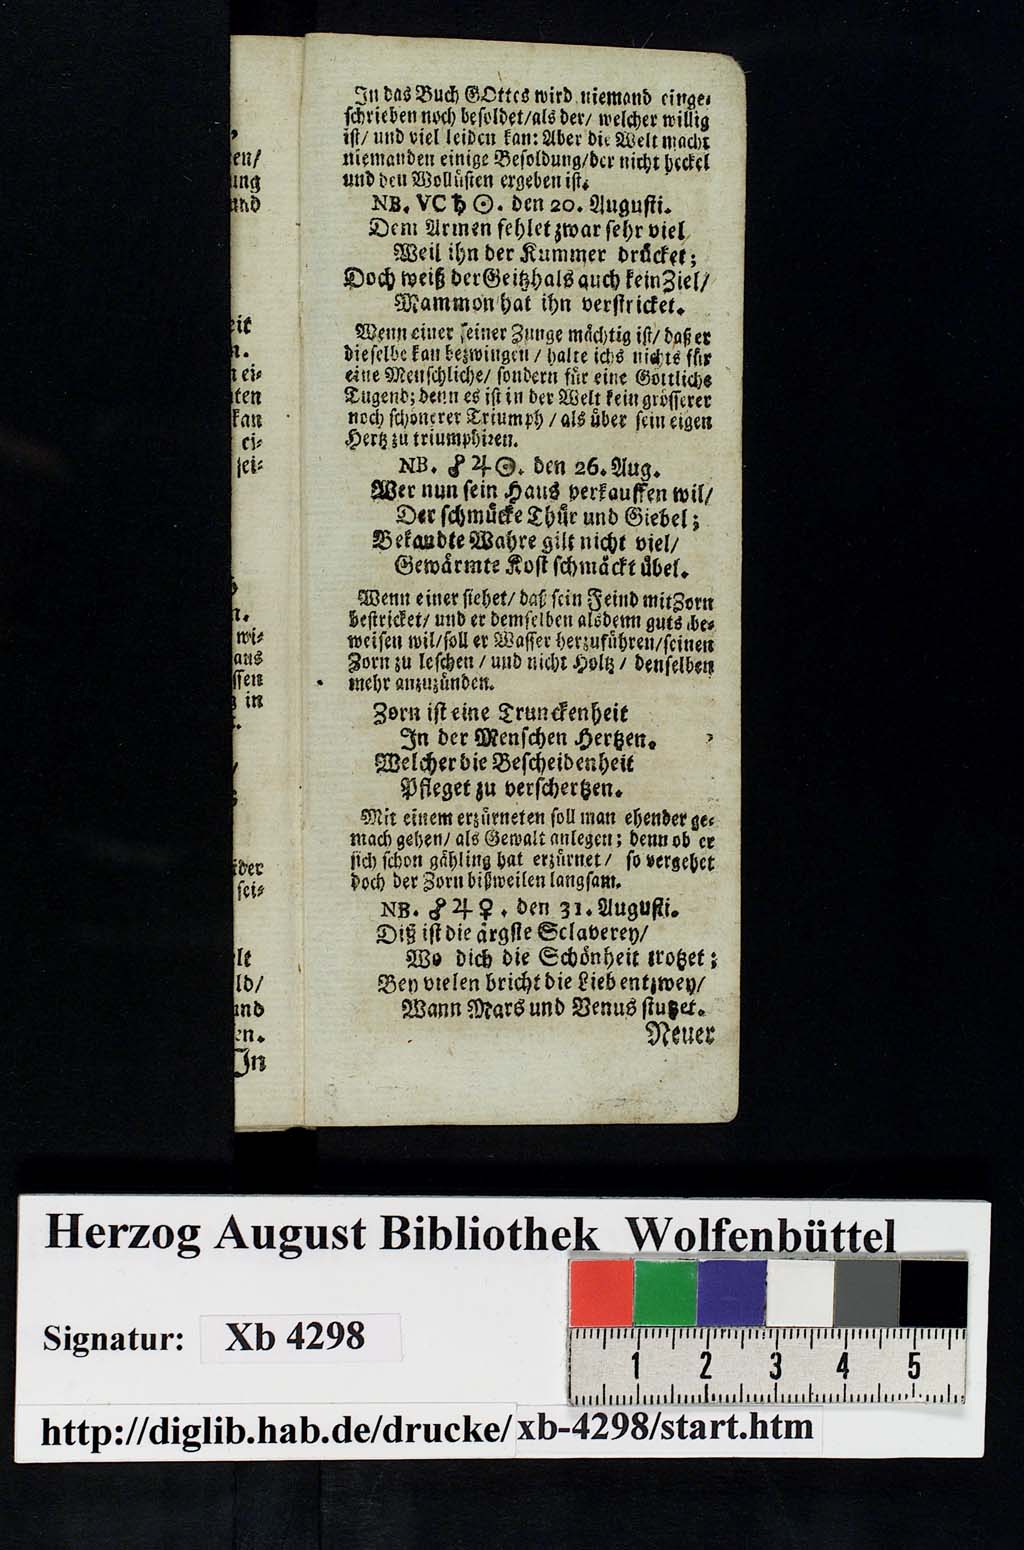 In das Buch GOttes wird niemand einge-
schrieben noch besoldet/als der/ welcher willig
ist/ und viel leiden kan: Aber die Welt macht
niemanden einige Besoldung/der nicht heckel
und den Wollüsten ergeben ist.
NB. VC ♄ ☉. den 20. Augusti.
Dem Armen fehlet zwar sehr viel
Weil ihn der Kummer drücket;
Doch weiß der Geitzhals auch kein Ziel/
Mammon hat ihn verstricket.
Wenn einer seiner Zunge mächtig ist/ daß er
dieselbe kan bezwingen / halte ichs nichts für
eine Menschliche/ sondern für eine Göttliche
Tugend; denn es ist in der Welt kein grösserer
noch schönerer Triumph / als über sein eigen
Hertz zu triumphiren.
NB. ♂ ♃ ☉. den 26. Aug.
Wer nun sein Haus verkauffen wil/
Der schmücke Thür und Giebel;
Bekandte Wahre gilt nicht viel/
Gewärmte Kost schmäckt übel.
Wenn einer siehet/ daß sein Feind mit Zorn
bestricket/ und er demselben alsdenn guts be-
weisen wil/soll er Wasser herzuführen/seinen
Zorn zu leschen / und nicht Holtz / denselben
mehr anzuzünden.
Zorn ist eine Trunckenheit
In der Menschen Hertzen.
Welcher die Bescheidenheit
Pfleget zu verschertzen.
Mit einem erzürneten soll man ehender ge-
mach gehen/ als Gewalt anlegen; denn ob er
sich schon gähling hat erzürnet/ so vergehet
doch der Zorn bißweilen langsam.
NB. ♂ ♃ ♀. den 31. Augusti.
Diß ist die ärgste Sclaverey/
Wo dich die Schönheit trotzet;
Bey vielen bricht die Lieb entzwey/
Wann Mars und Venus stutzet.
Neuer
en/
ung
und
eit
n.
ei-
ten
kan
ei-
sei-
n.
wi-
aus
ssen
in
der
sei-
elt
ld/
und
en.
In
Herzog August Bibliothek Wolfenbüttel
Signatur: Xb 4298
1 2 3 4 5
http://diglib.hab.de/drucke/xb-4298/start.htm